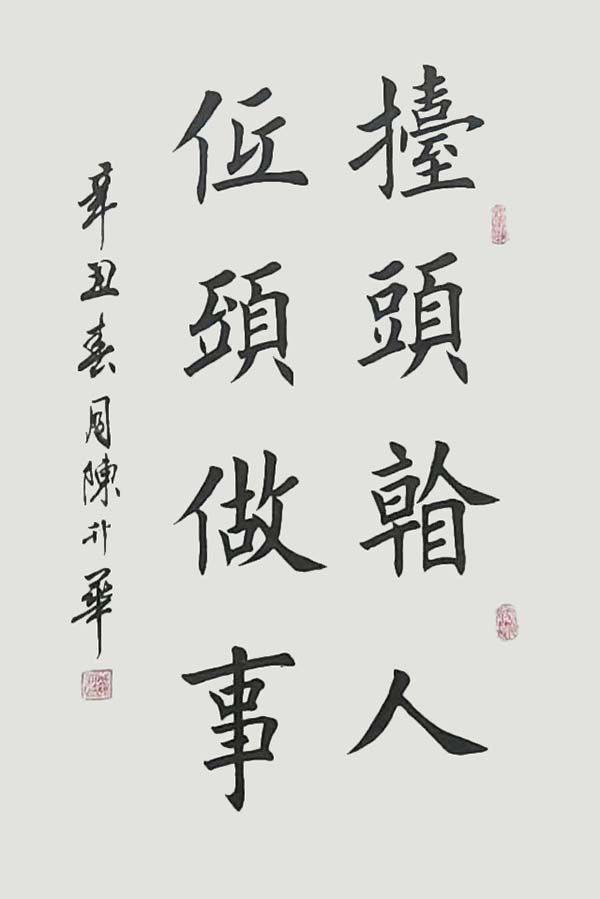 擡頭看人
低頭做事
辛丑春月陳升華